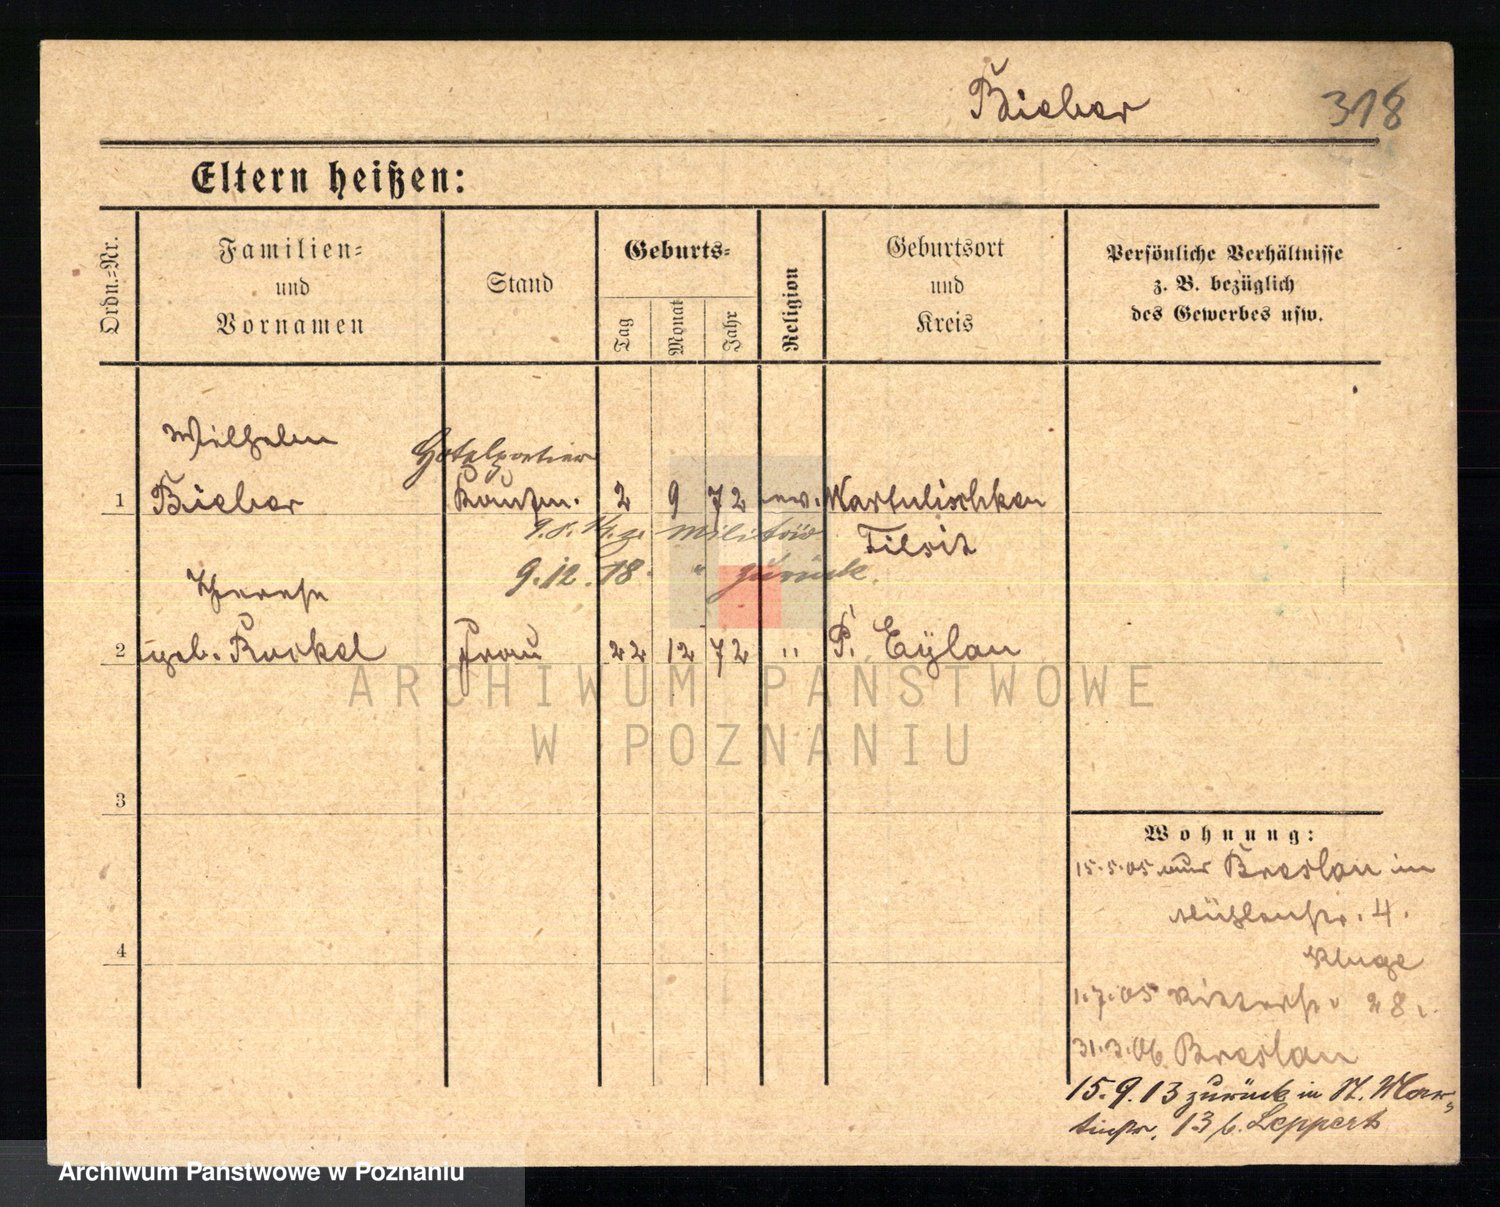 Bieber
318
Eltern heißen:
Ordn.=Nr.
Familien=
und
Vornamen
Stand
Geburts=
Tag
Monat
Jahr
Religion
Geburtsort
und
Kreis
Persönliche Verhältnisse
z. B. bezüglich
des Gewerbes usw.
Wilhelm
Hotelportier
1 Bieber Kaufm. 2 9 72 ev. Wartulischken
zum Militär
Tilsit
9.12.18. " zurück.
Therese
2 geb. Frau 22 12 72 " P. Eylau
3
4
Wohnung:
15.5.05 aus Breslau in
Mühlenstr. 4.
Kluge
1.7.05 Ritterstr. 28.
31.3.06. Breslau
15.9.13 zurück in St. Mar-
tinstr. 13 b. Leppert
ARCHIWUM PAŃSTWOWE
W POZNANIU
Archiwum Państwowe w Poznaniu